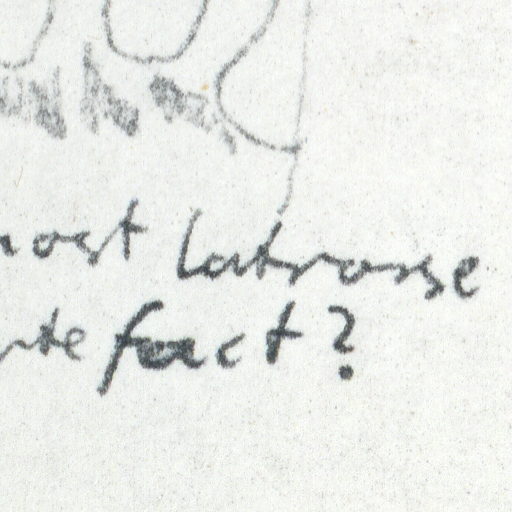 most latrorse
artefact?